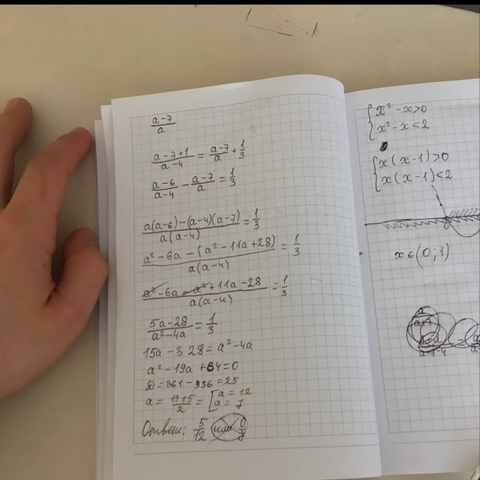 a-7/a
a-7+1/a-4 = a-7/a + 1/3
a-6/a-4 - a-7/a = 1/3
a(a-6)-(a-4)(a-7)/a(a-4) = 1/3
a²-6a-(a²-11a+28)/a(a-4) = 1/3
a²-6a-a²+11a-28/a(a-4) = 1/3
5a-28/a²-4a = 1/3
15a-3 28=a²-4a
a²-19a+84=0
D=361-336=25
a = 19±5/2 = [a=12
a=7
Ответ: 5/12 или 0/7
{x²-x>0
x²-x<2
{x(x-1)>0
x(x-1)<2
x∈(0;1)